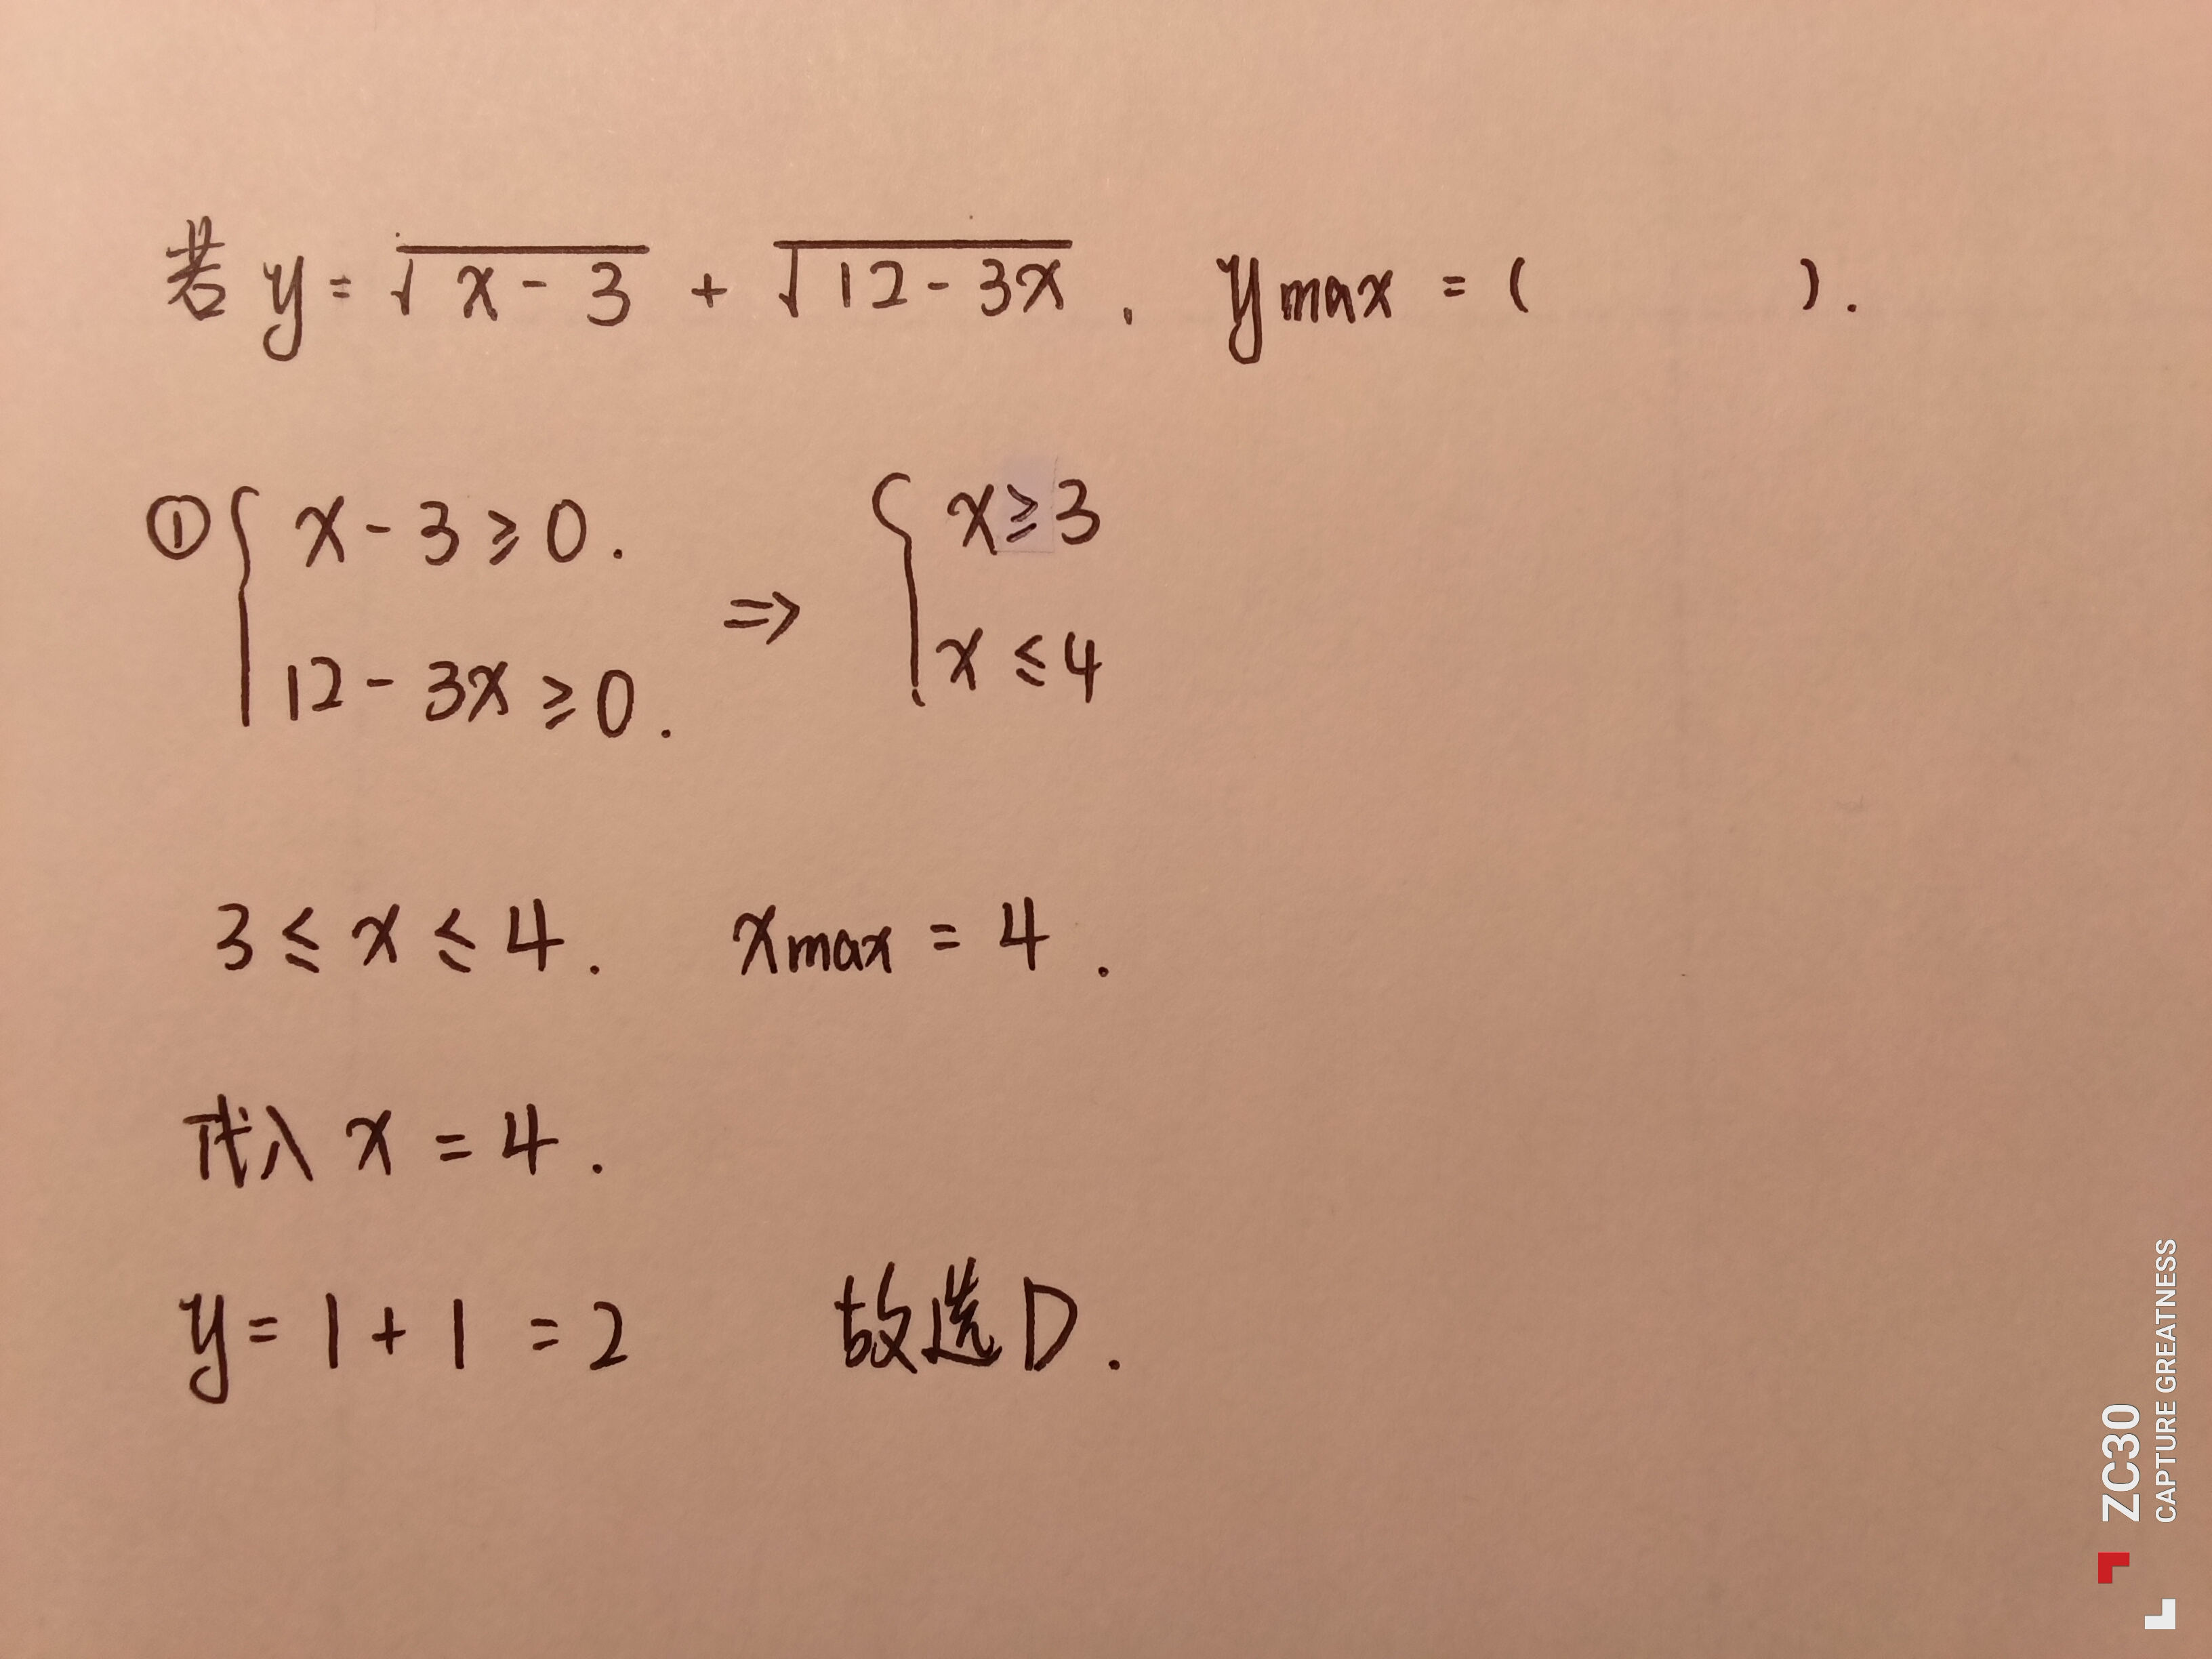 若 y = √(x - 3) + √(12 - 3x) , y max = (       ).
① { x - 3 ≥ 0. 12 - 3x ≥ 0. => { x ≥ 3 x ≤ 4
3 ≤ x ≤ 4. x max = 4.
代入 x = 4.
y = 1 + 1 = 2 故选 D.
ZC30
CAPTURE GREATNESS